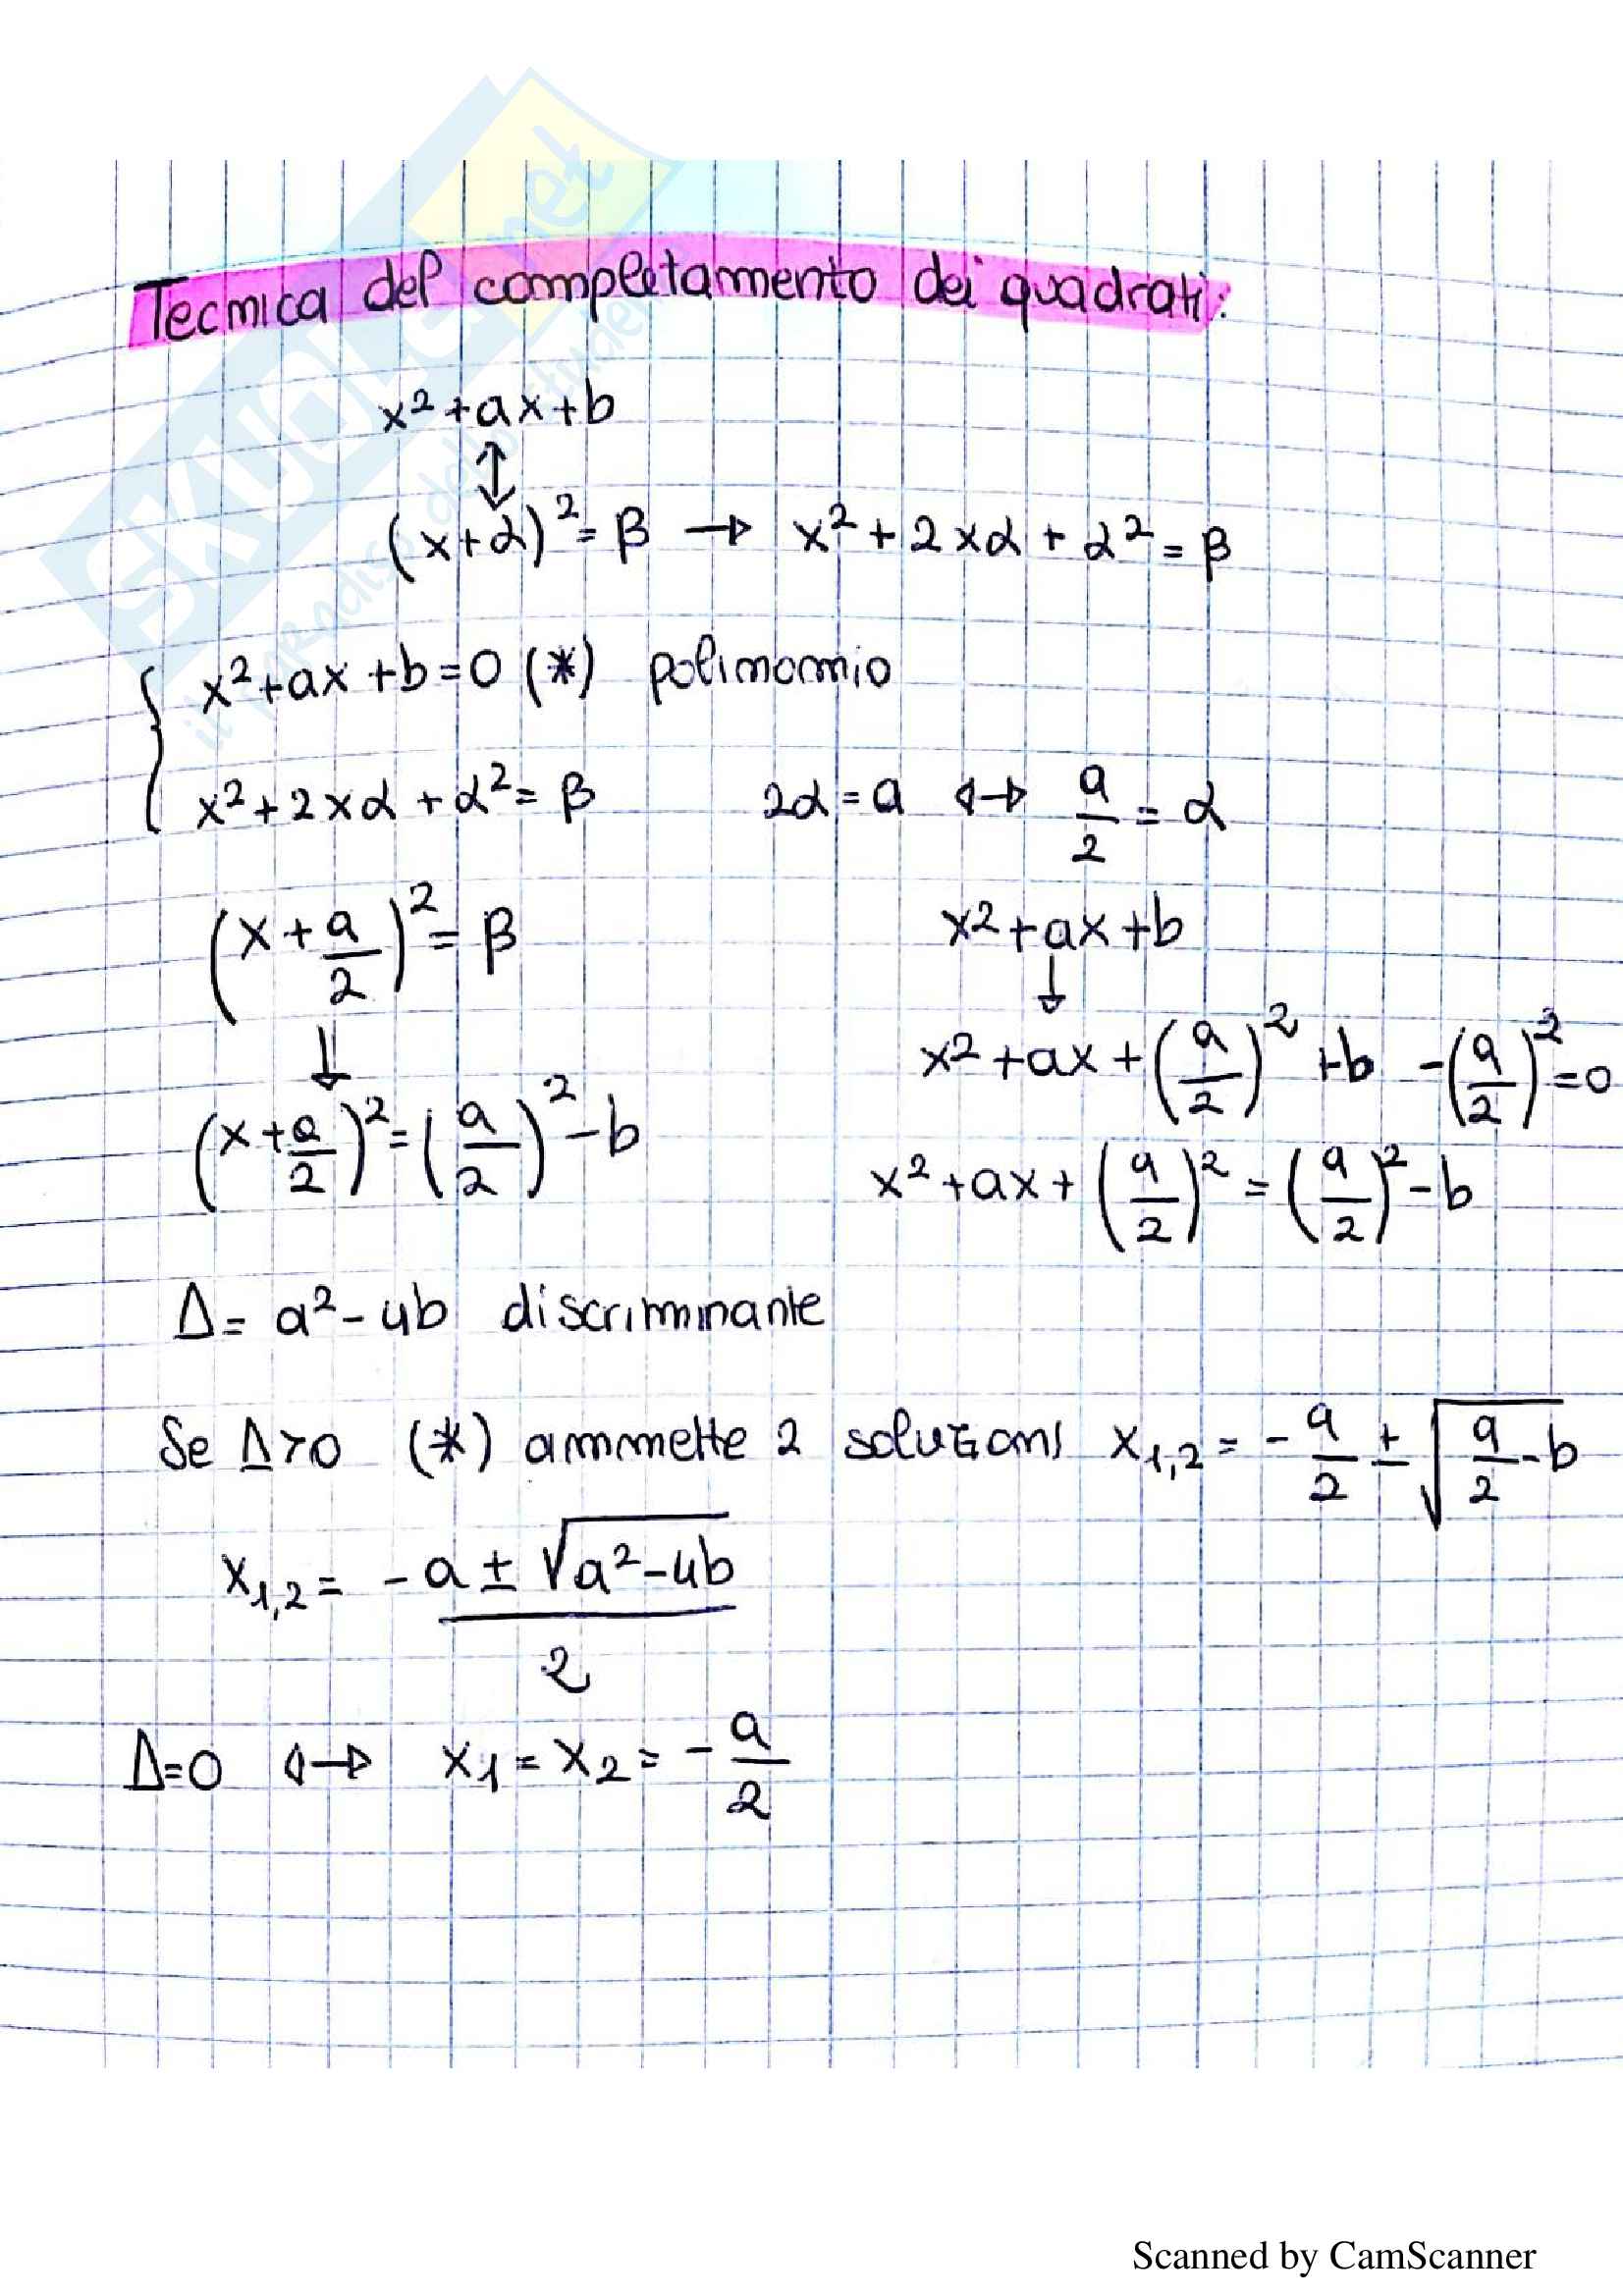 SKUOLA.net
il paradiso dello studente
Tecnica del completamento dei quadrati:
x² + ax + b
↕
(x+α)² = β → x² + 2xα + α² = β
{ x² + ax + b = 0 (*) polinomio
x² + 2xα + α² = β 2α = a ↔ a/2 = α
(x + a/2)² = β x² + ax + b
↓ ↓
x² + ax + (a/2)² + b - (a/2)² = 0
(x + a/2)² = (a/2)² - b
x² + ax + (a/2)² = (a/2)² - b
Δ = a² - 4b discriminante
Se Δ > 0 (*) ammette 2 soluzioni x₁,₂ = - a/2 ± √(a/2 - b)
x₁,₂ = (-a ± √(a² - 4b))/2
Δ = 0 ↔ x₁ = x₂ = - a/2
Scanned by CamScanner